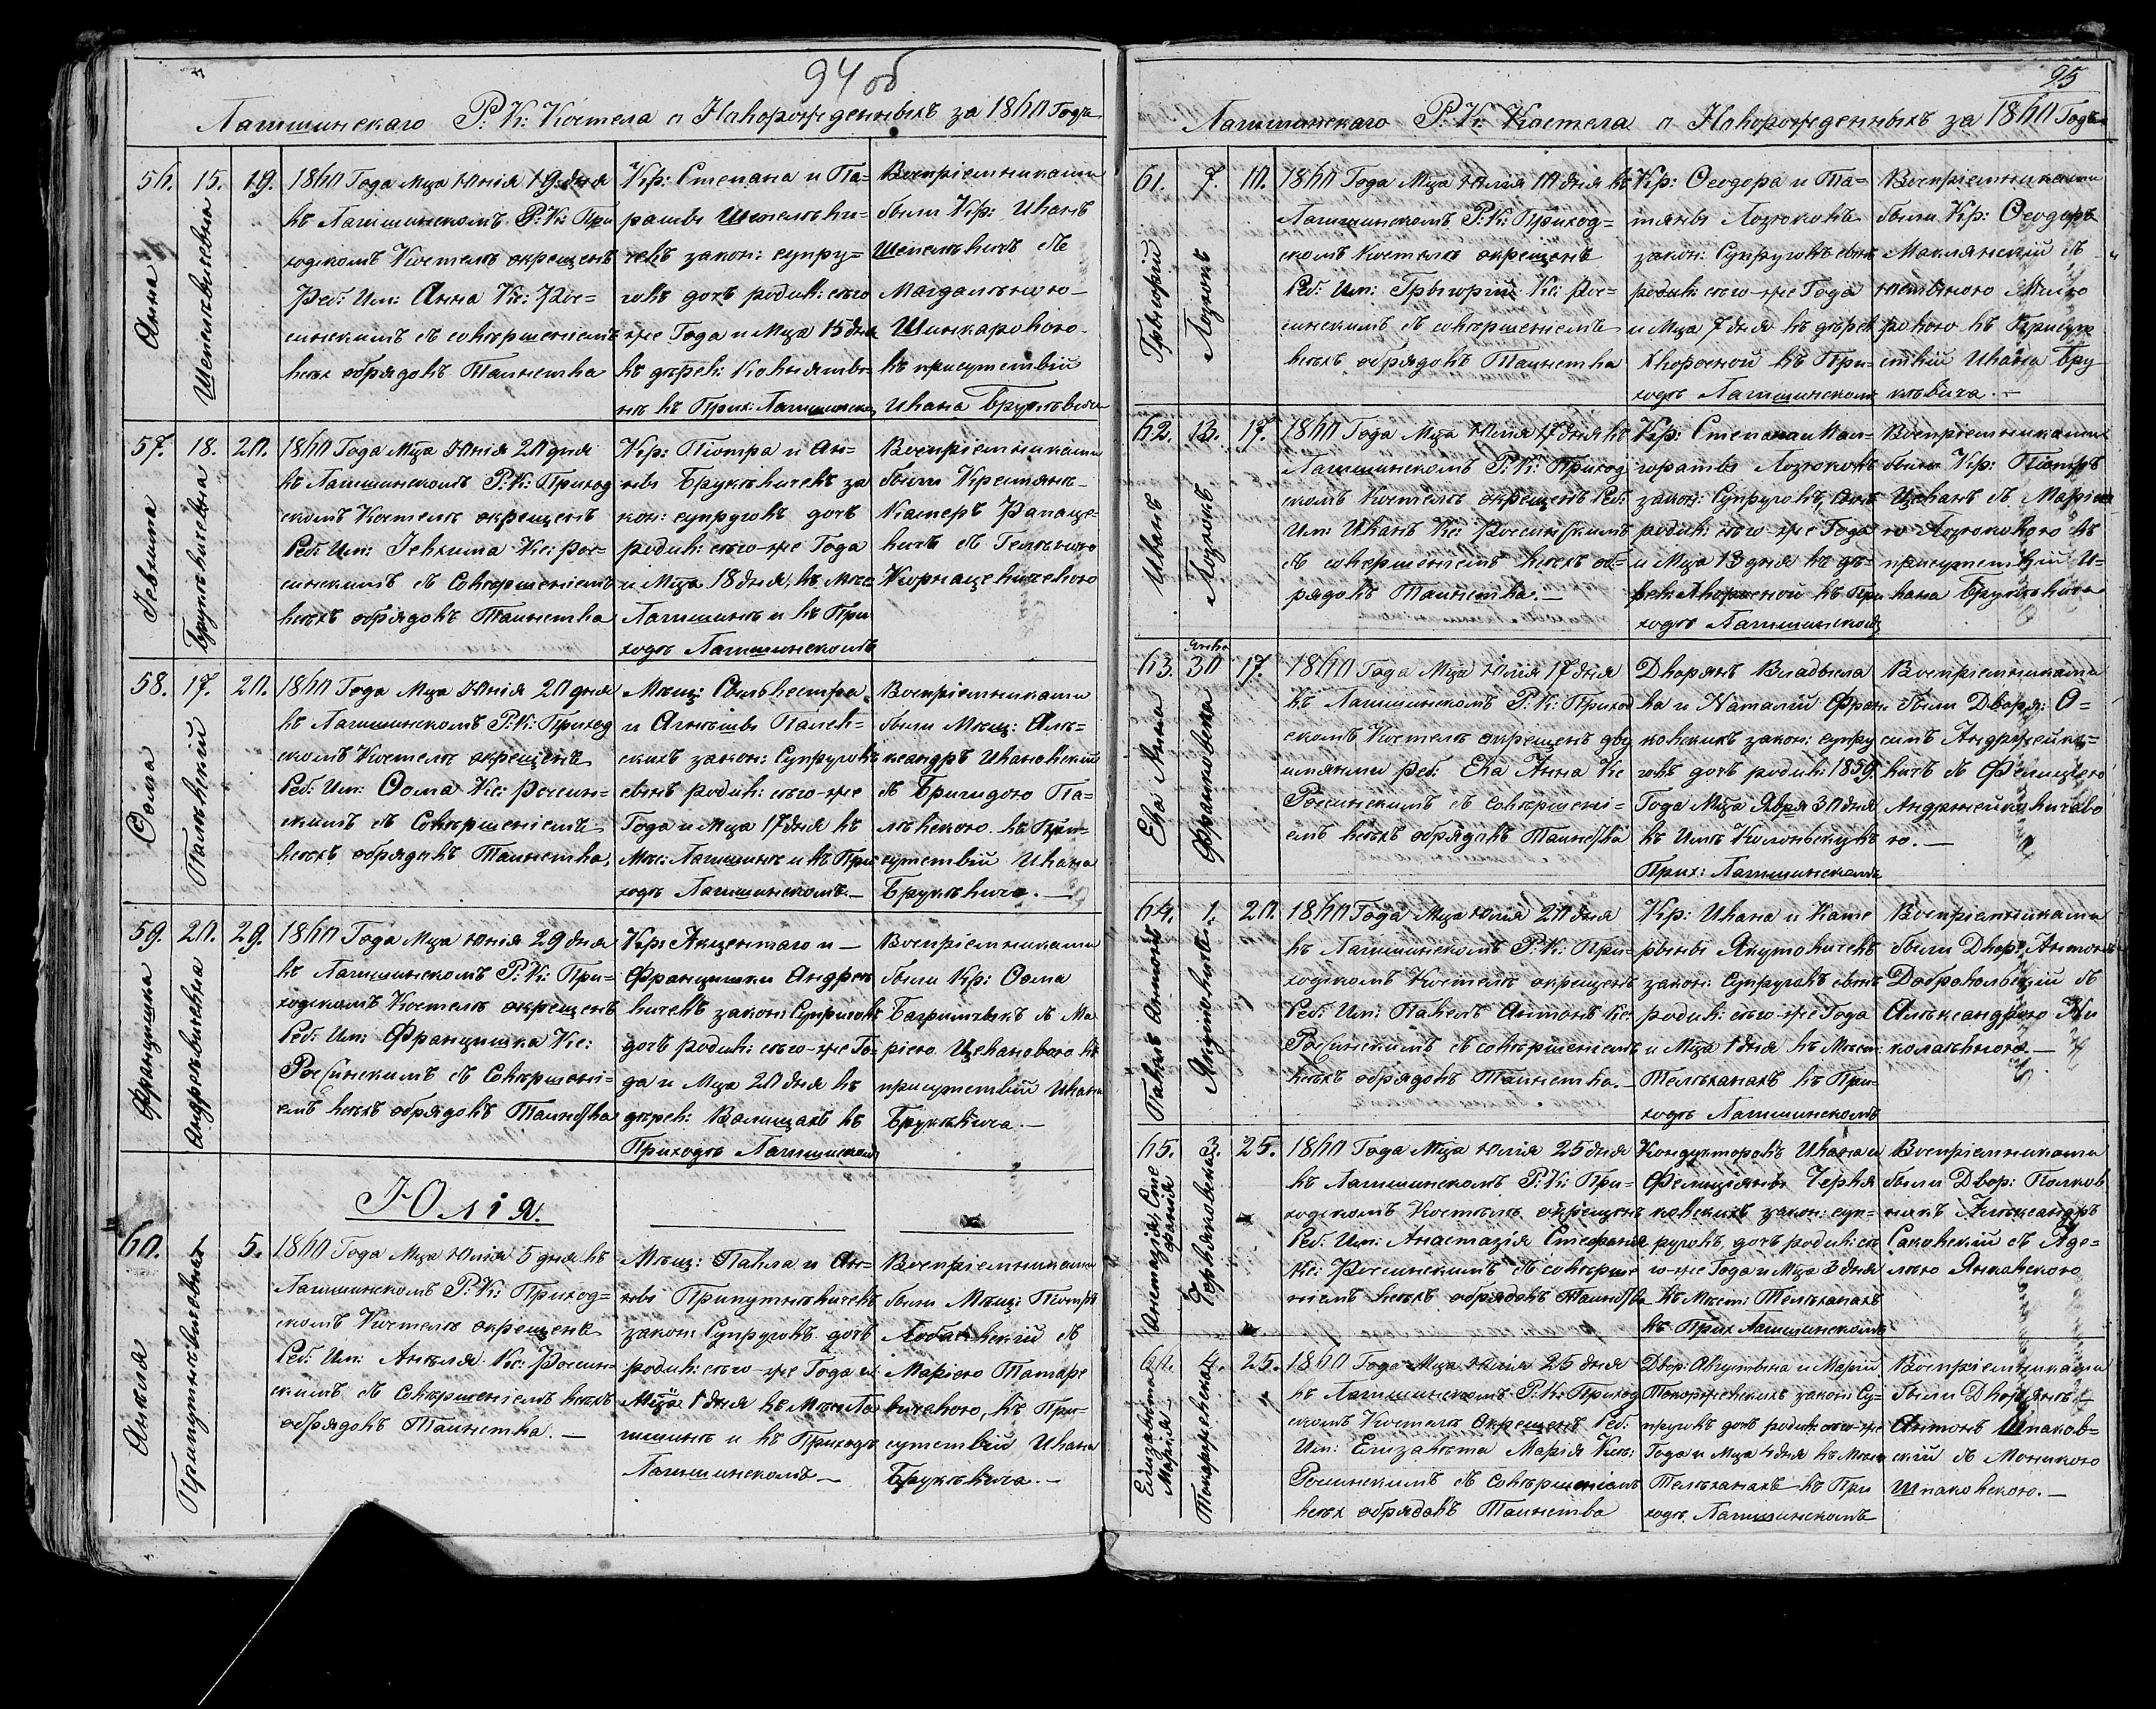 94 об
Лагишинскаго Р: К: Костела о Новорожденныхъ за 1860 Годъ
56. 15. 19.
Анна
Шепелѣвичевна
1860 Года Мца Юнія 19 дня
въ Лагишинскомъ Р: К: При
ходскомъ Костелѣ окрещенъ
Реб: Им: Анна Кс: Рос=
синскимъ съ совершеніемъ
всѣх обрядовъ Таинства
Кр: Степана и Па-
рашвы Шепелѣви=
чевъ закон: супру=
говъ дочь родив: сего
же Года и Мца 15 дня
въ дерев:
въ Прих: Лагишинском
Воспріемниками
были Кр: Иванъ
Шепелѣвичъ съ
Магдаленою
Шинкаровою
въ присутствіи
Ивана Брукѣвича
57. 18. 20.
Іевхима
Брукѣвичевна
1860 Года Мца Юнія 20 дня
въ Лагишинскомъ Р: К: Приход
скомъ Костелѣ окрещенъ
Реб: Им: Іевхима Кс: Рос=
синскимъ съ Совершеніемъ
всѣхъ обрядовъ Таинства
Кр: Піотра и Ан=
ны Брукѣвичевъ за
кон: супруговъ дочь
родив: сего-же Года
и Мца 18 дня, въ Мѣс:
Лагишинѣ и въ При
ходѣ Лагишинскомъ
Воспріемниками
были Крестянъ
съ
58. 17. 20.
Ѳома
Палевскій
1860 Года Мца Юнія 20 дня
въ Лагишинскомъ Р: К: Приход
скомъ Костелѣ окрещенъ
Реб: Им: Ѳома Кс: Россин=
скимъ съ Совершеніемъ
всѣхъ обрядовъ Таинства,
Мѣщ: Сильвестра
и Агнѣшвы Палев=
скихъ закон: Супруговъ
сынъ родив: сего-же
Года и Мца 17 дня въ
Мѣс: Лагишинѣ и въ При
ходѣ Лагишинскомъ.—
Воспріемниками
были Мѣщ: Алѣ=
ксандръ Ивановскій
съ Бригидою Па=
лѣвскою въ При=
сутствіи Ивана
Брукѣвича.—
59. 20. 29.
Францишка
Андрѣевичевна
1860 Года Мца Юнія 29 дня
въ Лагишинскомъ Р: К: При=
ходскомъ Костелѣ окрещенъ
Реб: Им: Францишка Кс:
Россинскимъ съ Соверше
емъ всѣхъ обрядовъ Таинства
Кр: Якцентаго и —
Францишки Андрее
вичевъ закон: Супруговъ
дочь родив: сего-же Го=
да и Мца 20 дня въ
дерев: Валищахъ въ
Приходѣ Лагишинском
Воспріемниками
были Кр: Ѳома
съ Ма
ріею Цехановою въ
присутствіи Ивана
Брукѣвича.—
Юлія.
60. 5.
Анѣля
Припутнѣвичевна
1860 Года Мца Юлія 5 дня въ
Лагишинскомъ Р: К: Приход=
скомъ Костелѣ окрещенъ
Реб: Им: Анѣля Кс: Россин=
скимъ съ Совершеніемъ всѣхъ
обрядовъ Таинства.—
Мѣщ: Павла и Ан=
ны Припутнѣвичевъ
закон: Супруговъ дочь
родив: сего-же Года и
Мца 1 дня въ Мѣс: Ла
гишинѣ и въ Приходѣ
Лагишинскомъ—
Воспріемниками
были Мѣщ: Піотръ
съ
Маріею Татаре
вичевою, въ При=
сутствіи Ивана
Брукѣвича.—
95
Лагишинскаго Р: К: Костела о Новорожденныхъ за 1860 Годъ
61. 7. 10.
Грыгорій
Лозюкъ
1860 Года Мца Юлія 10 дня въ
Лагишинскомъ Р: К: Приход=
скомъ Костелѣ окрещенъ
Реб: Им: Грыгорій Кс: Рос=
синскимъ съ совершеніемъ
всѣхъ обрядовъ Таинства
Кр: Ѳеодора и Та=
тяны Лозюковъ
закон: Супруговъ сынъ
родив: сего-же Года
и Мца 7 дня въ дерев
Хворосной въ При=
ходѣ Лагишинском
Воспріемниками
были Кр: Ѳеодоръ
съ
въ Присут
ствіи Ивана Бру
кѣвича.—
62. 13. 17.
Иванъ
Лозюкъ
1860 Года Мца Юлія 17 дня въ
Лагишинскомъ Р: К: Приход
скомъ Костелѣ окрещенъ Реб:
Им: Иванъ Кс: Россинскимъ
съ совершеніемъ всѣхъ об=
рядовъ Таинства.—
Кр: Степана и Мал=
гораты Лозюковъ
закон: Супруговъ, сынъ
родив: сего-же Года
и Мца 13 дня въ де=
рев: Хворосной въ При
ходѣ Лагишинском
Воспріемниками
были Кр: Піотръ
Цеханъ съ Маріею
Лозюковою въ
присутствіи И=
вана Брукѣвича
63. Янва 30 17.
Ева Анна
Франковска
1860 Года Мца Юлія 17 дня
въ Лагишинскомъ Р: К: Приход
скомъ Костелѣ окрещенъ дву
имянми реб: Ева Анна Кс
Россинскимъ съ Соверше
емъ всѣхъ обрядовъ Таинства
Дворянъ Владысла
ва и Наталіи Фран
ковскихъ закон: супру
говъ дочь родив: 1859
Года Мца Явря 30 дня
въ Им:
Прих: Лагишинскомъ
Воспріемниками
были Дворя: О=
сипъ Андржейке=
вичъ съ Фелиціею
Андржейковичево
ю.—
64. 1. 20.
Павелъ Антонъ
Якутовичъ
1860 Года Мца Юлія 20 дня
въ Лагишинскомъ Р: К: При=
ходскомъ Костелѣ окрещенъ
Реб: Им: Павелъ Антонъ Кс:
Россинскимъ съ совершеніемъ
всѣхъ обрядовъ Таинства.—
Кр: Ивана и Кате
рыны Якутовичевъ
закон: Супруговъ сынъ
родив: сего-же Года
и Мца 1 дня въ Мѣст:
Телѣханахъ въ При
ходѣ Лагишинскомъ
Воспріемниками
были Двор: Антонъ
Добровольскій съ
Алѣксандрою Ни
колаевною.—
65. 3. 25.
Анастазія Сте
фанія
Червяковска
1860 Года Мца Юлія 25 дня
въ Лагишинскомъ Р: К: При=
ходскомъ Костѣлѣ окрещенъ
Реб: Им: Анастазія Стефанія
Кс: Россинскимъ съ соверше
ніемъ всѣхъ обрядовъ Таинства
Кондукторовъ Ивана и
Фелиціяны Червя
ковскихъ закон: суп=
руговъ, дочь родив: се
го-же Года и Мца 3 дня
въ Мѣст: Телѣханахъ
въ Прих Лагишинскомъ
Воспріемниками
были Двор: Полков
никъ Алѣксандръ
Саковскій съ Аде=
лею Янковскою
66. 4. 25.
Елизавѣта
Марія
Токаржевска
1860 Года Мца Юлія 25 дня
въ Лагишинскомъ Р: К: Приход
скомъ Костелѣ Окрещенъ Реб:
Им: Елизавѣта Марія Кс:
Россинскимъ съ Совершеніемъ
всѣх обрядовъ Таинства
Двор: Августына и Маріи
Токаржевскихъ закон: Су=
пруговъ дочь родив: сего-же
Года и Мца 4 дня въ Мѣст
Телѣханахъ въ При
ходѣ Лагишинскомъ
Воспріемниками
были Дворянъ
Антонъ Шпаков=
скій съ Моникою
Шпаковскою.—